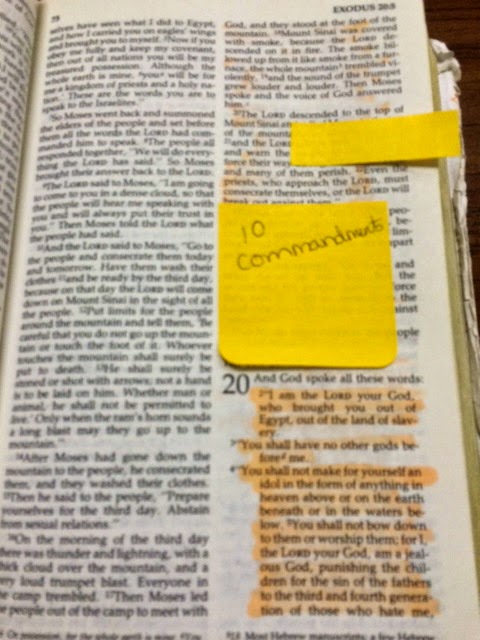 75
EXODUS 20:5
selves have seen what I did to Egypt,
and how I carried you on eagles' wings
and brought you to myself. ⁵Now if you
obey me fully and keep my covenant,
then out of all nations you will be my
treasured possession. Although the
whole earth is mine, ⁶you will be for
me a kingdom of priests and a holy na-
tion.' These are the words you are to
speak to the Israelites."
⁷So Moses went back and summoned
the elders of the people and set before
them all the words the LORD had com-
manded him to speak. ⁸The people all
responded together, "We will do every-
thing the LORD has said." So Moses
brought their answer back to the LORD.
⁹The LORD said to Moses, "I am going
to come to you in a dense cloud, so that
the people will hear me speaking with
you and will always put their trust in
you." Then Moses told the LORD what
the people had said.
¹⁰And the LORD said to Moses, "Go to
the people and consecrate them today
and tomorrow. Have them wash their
clothes ¹¹and be ready by the third day,
because on that day the LORD will come
down on Mount Sinai in the sight of all
the people. ¹²Put limits for the people
around the mountain and tell them, 'Be
careful that you do not go up the moun-
tain or touch the foot of it. Whoever
touches the mountain shall surely be
put to death. ¹³He shall surely be
stoned or shot with arrows; not a hand
is to be laid on him. Whether man or
animal, he shall not be permitted to
live.' Only when the ram's horn sounds
a long blast may they go up to the
mountain."
¹⁴After Moses had gone down the
mountain to the people, he consecrated
them, and they washed their clothes.
¹⁵Then he said to the people, "Prepare
yourselves for the third day. Abstain
from sexual relations."
¹⁶On the morning of the third day
there was thunder and lightning, with a
thick cloud over the mountain, and a
very loud trumpet blast. Everyone in
the camp trembled. ¹⁷Then Moses led
the people out of the camp to meet with
God, and they stood at the foot of the
mountain. ¹⁸Mount Sinai was covered
with smoke, because the LORD de-
scended on it in fire. The smoke bil-
lowed up from it like smoke from a fur-
nace, the whole mountain trembled vi-
olently, ¹⁹and the sound of the trumpet
grew louder and louder. Then Moses
spoke and the voice of God answered
him.
²⁰The LORD descended to the top of
Mount Sinai an
of the mounta
²¹and the LORD
and warn the
force their way
and many of them perish. ²²Even the
priests, who approach the LORD, must
consecrate themselves, or the LORD will
break out against them."
peo-
be-
lim-
apart
and
the
force
the
ainst
ople
10
Commandments
20 And God spoke all these words:
²"I am the LORD your God,
who brought you out of
Egypt, out of the land of slav-
ery.
³"You shall have no other gods be-
fore me.
⁴"You shall not make for yourself an
idol in the form of anything in
heaven above or on the earth
beneath or in the waters be-
low. ⁵You shall not bow down
to them or worship them; for I,
the LORD your God, am a jeal-
ous God, punishing the chil-
dren for the sin of the fathers
to the third and fourth genera-
tion of those who hate me,